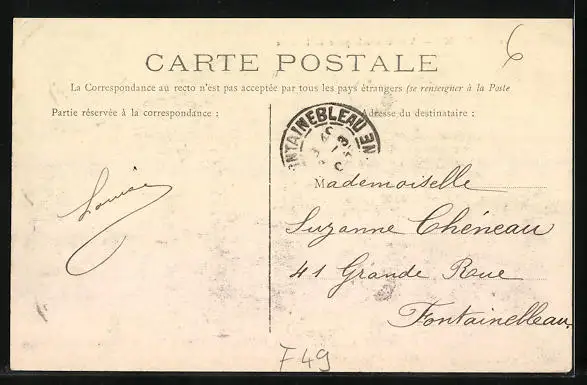 6
CARTE POSTALE
La Correspondance au recto n'est pas acceptée par tous les pays étrangers (se renseigner à la Poste
Partie réservée à la correspondance :
Louise
Adresse du destinataire :
FONTAINEBLEAU
Mademoiselle
Suzanne Chéneau
41 Grande Rue
Fontainebleau
F49